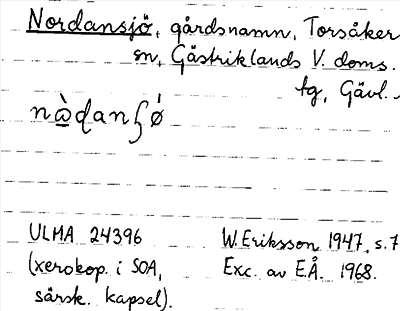 Nordansjö, gårdsnamn, Torsåker
sn, Gästriklands V. doms.
tg, Gävl.
ULMA 24396
(xerokop. i SOA,
särsk. kapsel).
W. Eriksson 1947, s. 7
Exc. av E.Å. 1968.